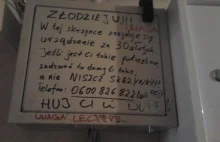 ZŁODZIEJU!!!
W tej skrzynce znajduje się
urządzenie za 30 złotych
Jeśli jest ci takie potrzebne
zadzwoń to dam ci takie,
a nie NISZCZ SKRZYNKI!!!
Telefon: 0600 826 822
HUJ CI W DUPĘ!
UWAGA